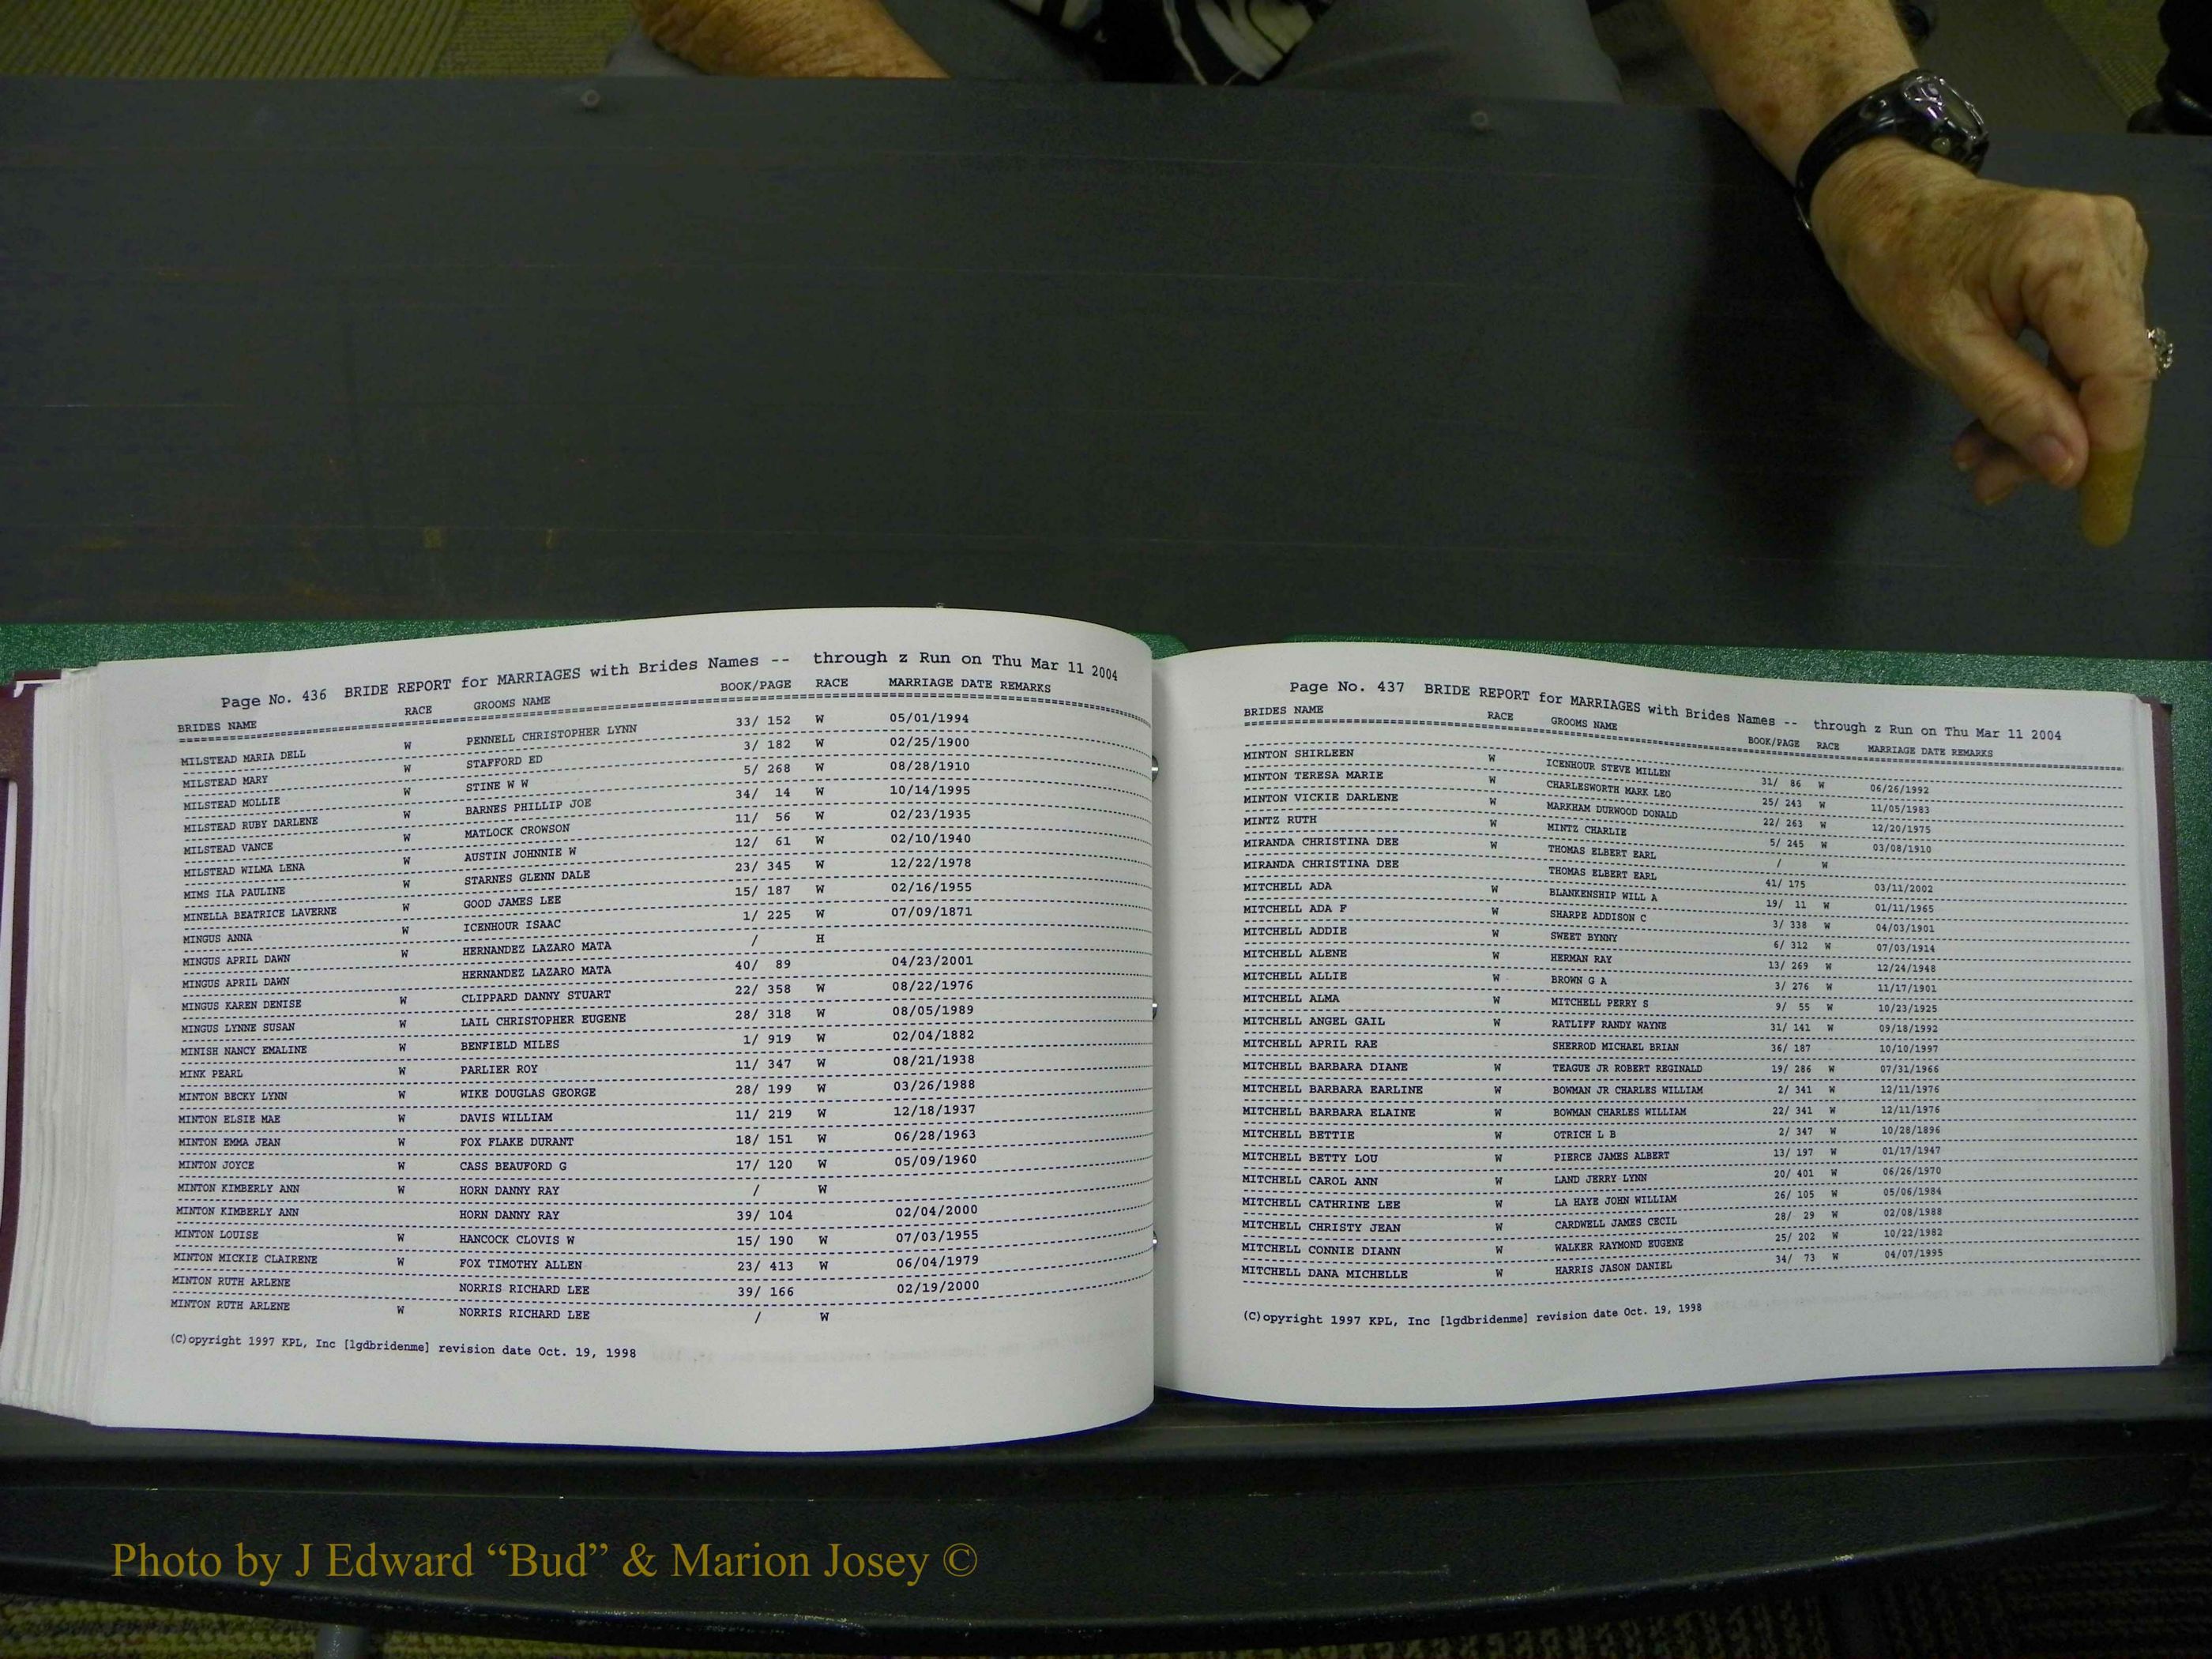 Page No. 436 BRIDE REPORT for MARRIAGES with Brides Names -- through z Run on Thu Mar 11 2004
BRIDES NAME RACE GROOMS NAME BOOK/PAGE RACE MARRIAGE DATE REMARKS
MILSTEAD MARIA DELL W PENNELL CHRISTOPHER LYNN 33/ 152 W 05/01/1994
MILSTEAD MARY W STAFFORD ED 3/ 182 W 02/25/1900
MILSTEAD MOLLIE W STINE W W 5/ 268 W 08/28/1910
MILSTEAD RUBY DARLENE W BARNES PHILLIP JOE 34/ 14 W 10/14/1995
MILSTEAD VANCE W MATLOCK CROWSON 11/ 56 W 02/23/1935
MILSTEAD WILMA LENA W AUSTIN JOHNNIE W 12/ 61 W 02/10/1940
MIMS ILA PAULINE W STARNES GLENN DALE 23/ 345 W 12/22/1978
MINELLA BEATRICE LAVERNE W GOOD JAMES LEE 15/ 187 W 02/16/1955
MINGUS ANNA W ICENHOUR ISAAC 1/ 225 W 07/09/1871
MINGUS APRIL DAWN W HERNANDEZ LAZARO MATA / H
MINGUS APRIL DAWN HERNANDEZ LAZARO MATA 40/ 89 04/23/2001
MINGUS KAREN DENISE W CLIPPARD DANNY STUART 22/ 358 W 08/22/1976
MINGUS LYNNE SUSAN W LAIL CHRISTOPHER EUGENE 28/ 318 W 08/05/1989
MINISH NANCY EMALINE W BENFIELD MILES 1/ 919 W 02/04/1882
MINK PEARL W PARLIER ROY 11/ 347 W 08/21/1938
MINTON BECKY LYNN W WIKE DOUGLAS GEORGE 28/ 199 W 03/26/1988
MINTON ELSIE MAE W DAVIS WILLIAM 11/ 219 W 12/18/1937
MINTON EMMA JEAN W FOX FLAKE DURANT 18/ 151 W 06/28/1963
MINTON JOYCE W CASS BEAUFORD G 17/ 120 W 05/09/1960
MINTON KIMBERLY ANN W HORN DANNY RAY / W
MINTON KIMBERLY ANN HORN DANNY RAY 39/ 104 02/04/2000
MINTON LOUISE W HANCOCK CLOVIS W 15/ 190 W 07/03/1955
MINTON MICKIE CLAIRENE W FOX TIMOTHY ALLEN 23/ 413 W 06/04/1979
MINTON RUTH ARLENE NORRIS RICHARD LEE 39/ 166 02/19/2000
MINTON RUTH ARLENE W NORRIS RICHARD LEE / W
(C)opyright 1997 KPL, Inc [lgdbridenme] revision date Oct. 19, 1998
Page No. 437 BRIDE REPORT for MARRIAGES with Brides Names -- through z Run on Thu Mar 11 2004
BRIDES NAME RACE GROOMS NAME BOOK/PAGE RACE MARRIAGE DATE REMARKS
MINTON SHIRLEEN W ICENHOUR STEVE MILLEN 31/ 86 W 06/26/1992
MINTON TERESA MARIE W CHARLESWORTH MARK LEO 25/ 243 W 11/05/1983
MINTON VICKIE DARLENE W MARKHAM DURWOOD DONALD 22/ 263 W 12/20/1975
MINTZ RUTH W MINTZ CHARLIE 5/ 245 W 03/08/1910
MIRANDA CHRISTINA DEE W THOMAS ELBERT EARL / W
MIRANDA CHRISTINA DEE THOMAS ELBERT EARL 41/ 175 03/11/2002
MITCHELL ADA W BLANKENSHIP WILL A 19/ 11 W 01/11/1965
MITCHELL ADA F W SHARPE ADDISON C 3/ 338 W 04/03/1901
MITCHELL ADDIE W SWEET BYNNY 6/ 312 W 07/03/1914
MITCHELL ALENE W HERMAN RAY 13/ 269 W 12/24/1948
MITCHELL ALLIE W BROWN G A 3/ 276 W 11/17/1901
MITCHELL ALMA W MITCHELL PERRY S 9/ 55 W 10/23/1925
MITCHELL ANGEL GAIL W RATLIFF RANDY WAYNE 31/ 141 W 09/18/1992
MITCHELL APRIL RAE SHERROD MICHAEL BRIAN 36/ 187 10/10/1997
MITCHELL BARBARA DIANE W TEAGUE JR ROBERT REGINALD 19/ 286 W 07/31/1966
MITCHELL BARBARA EARLINE W BOWMAN JR CHARLES WILLIAM 2/ 341 W 12/11/1976
MITCHELL BARBARA ELAINE W BOWMAN CHARLES WILLIAM 22/ 341 W 12/11/1976
MITCHELL BETTIE W OTRICH L B 2/ 347 W 10/28/1896
MITCHELL BETTY LOU W PIERCE JAMES ALBERT 13/ 197 W 01/17/1947
MITCHELL CAROL ANN W LAND JERRY LYNN 20/ 401 W 06/26/1970
MITCHELL CATHRINE LEE W LA HAYE JOHN WILLIAM 26/ 105 W 05/06/1984
MITCHELL CHRISTY JEAN W CARDWELL JAMES CECIL 28/ 29 W 02/08/1988
MITCHELL CONNIE DIANN W WALKER RAYMOND EUGENE 25/ 202 W 10/22/1982
MITCHELL DANA MICHELLE W HARRIS JASON DANIEL 34/ 73 W 04/07/1995
(C)opyright 1997 KPL, Inc [lgdbridenme] revision date Oct. 19, 1998
Photo by J Edward “Bud” & Marion Josey ©